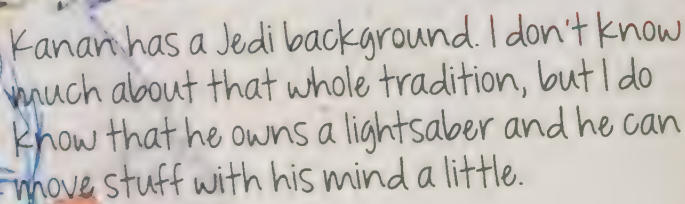 Kanan has a Jedi background. I don't know
much about that whole tradition, but I do
know that he owns a lightsaber and he can
move stuff with his mind a little.